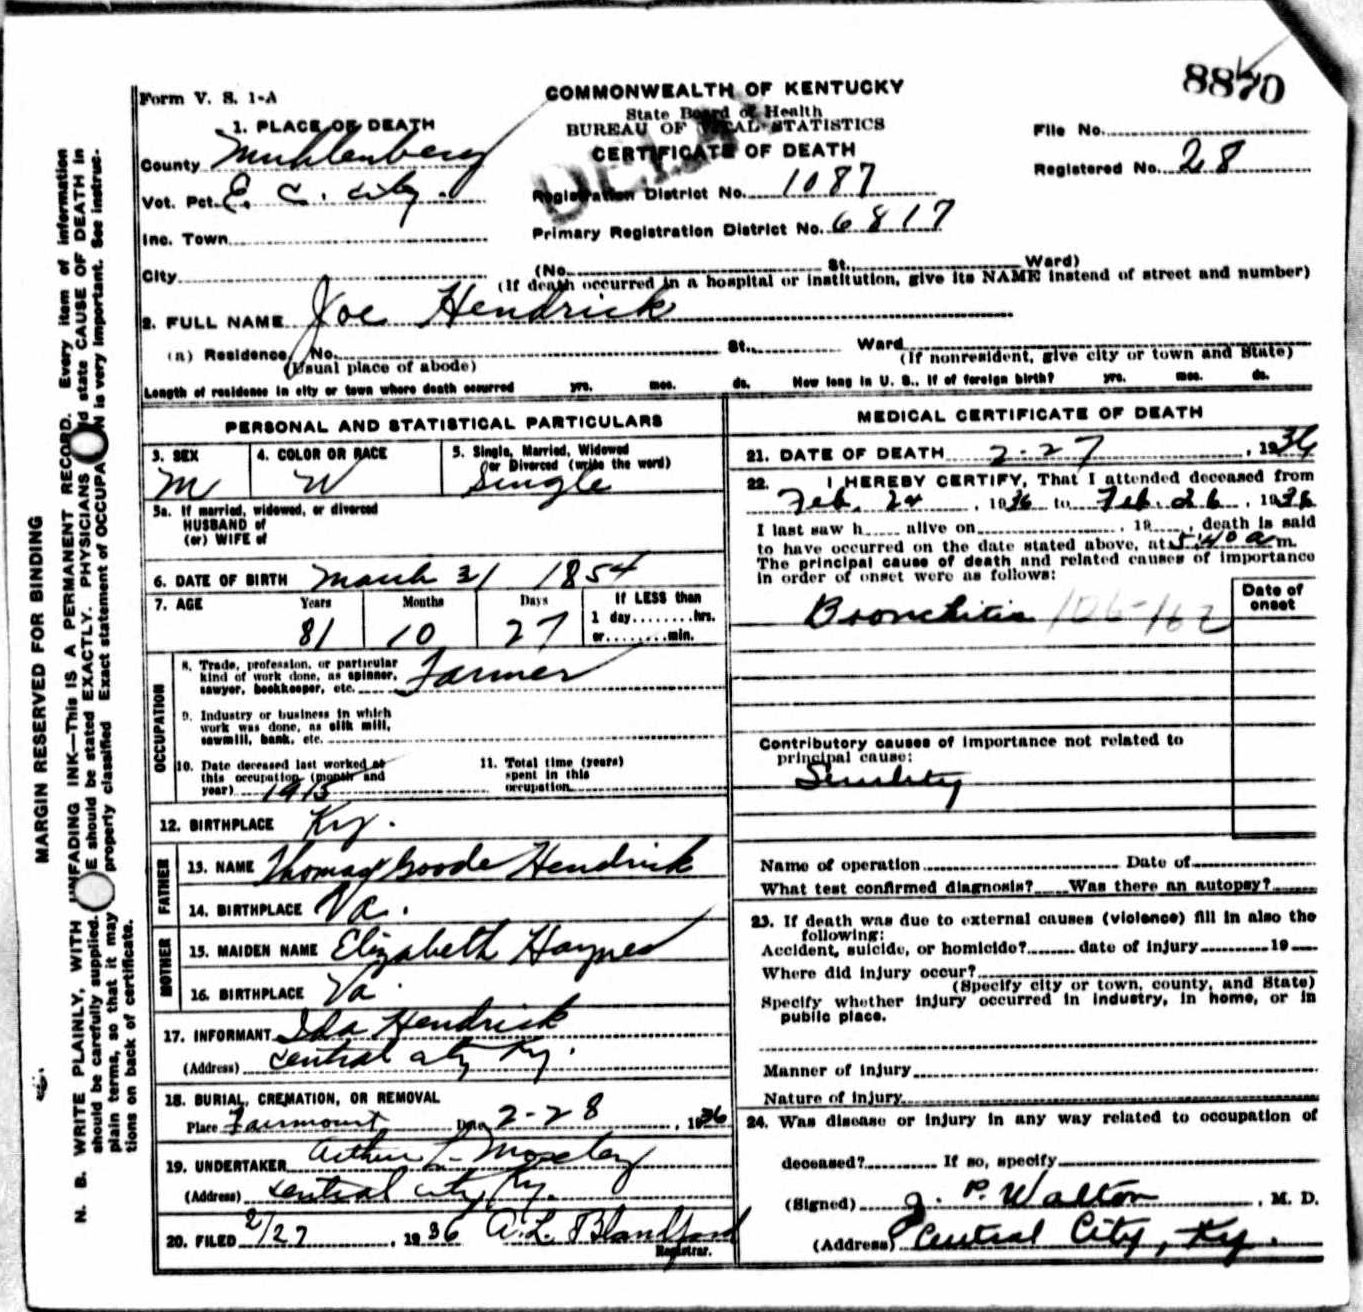 8870
Form V. S. 1-A
COMMONWEALTH OF KENTUCKY
State Board of Health
BUREAU OF VITAL STATISTICS
CERTIFICATE OF DEATH
File No.
Registered No. 28
1. PLACE OF DEATH
County Muhlenberg
Vot. Pct. E. C. City.
Inc. Town
City
Registration District No. 1087
Primary Registration District No. 6817
(No. St., Ward)
(If death occurred in a hospital or institution, give its NAME instead of street and number)
2. FULL NAME Joe Hendrick
(a) Residence, No. St., Ward
(Usual place of abode) (If nonresident, give city or town and State)
Length of residence in city or town where death occurred yrs. mos. ds. How long in U. S., if of foreign birth? yrs. mos. ds.
PERSONAL AND STATISTICAL PARTICULARS
3. SEX M
4. COLOR OR RACE W
5. Single, Married, Widowed
or Divorced (write the word)
Single
5a. If married, widowed, or divorced
HUSBAND of
(or) WIFE of
6. DATE OF BIRTH March 31 1854
7. AGE Years Months Days If LESS than
1 day........hrs.
81 10 27 or........min.
OCCUPATION
8. Trade, profession, or particular
kind of work done, as spinner,
sawyer, bookkeeper, etc. Farmer
9. Industry or business in which
work was done, as silk mill,
sawmill, bank, etc.
10. Date deceased last worked at
this occupation (month and
year) 1915
11. Total time (years)
spent in this
occupation
12. BIRTHPLACE Ky.
FATHER
13. NAME Thomas Goode Hendrick
14. BIRTHPLACE Va.
MOTHER
15. MAIDEN NAME Elizabeth Haynes
16. BIRTHPLACE Va.
17. INFORMANT Ida Hendrick
(Address) Central City Ky.
18. BURIAL, CREMATION, OR REMOVAL
Place Fairmount Date 2-28, 1936
19. UNDERTAKER Arthur L. Moseley
(Address) Central City, Ky.
20. FILED 2/27, 1936 A. L. Blandford
Registrar.
MEDICAL CERTIFICATE OF DEATH
21. DATE OF DEATH 2-27, 1936
22. I HEREBY CERTIFY, That I attended deceased from
Feb. 24, 1936 to Feb. 26, 1936
I last saw h alive on , 19 , death is said
to have occurred on the date stated above, at 5:40 a m.
The principal cause of death and related causes of importance
in order of onset were as follows:
Date of
onset
Bronchitis 106-162
Contributory causes of importance not related to
principal cause:
Senility
Name of operation Date of
What test confirmed diagnosis? Was there an autopsy?
23. If death was due to external causes (violence) fill in also the
following:
Accident, suicide, or homicide? date of injury 19
Where did injury occur?
(Specify city or town, county, and State)
Specify whether injury occurred in industry, in home, or in
public place.
Manner of injury
Nature of injury
24. Was disease or injury in any way related to occupation of
deceased? If so, specify
(Signed) J. P. Walton, M. D.
(Address) Central City, Ky.
MARGIN RESERVED FOR BINDING
N. B. WRITE PLAINLY, WITH UNFADING INK—This IS A PERMANENT RECORD. Every item of information
should be carefully supplied. E should be stated EXACTLY. PHYSICIANS state CAUSE OF DEATH in
plain terms, so that it may properly classified Exact statement of OCCUPA N is very important. See instruc-
tions on back of certificate.